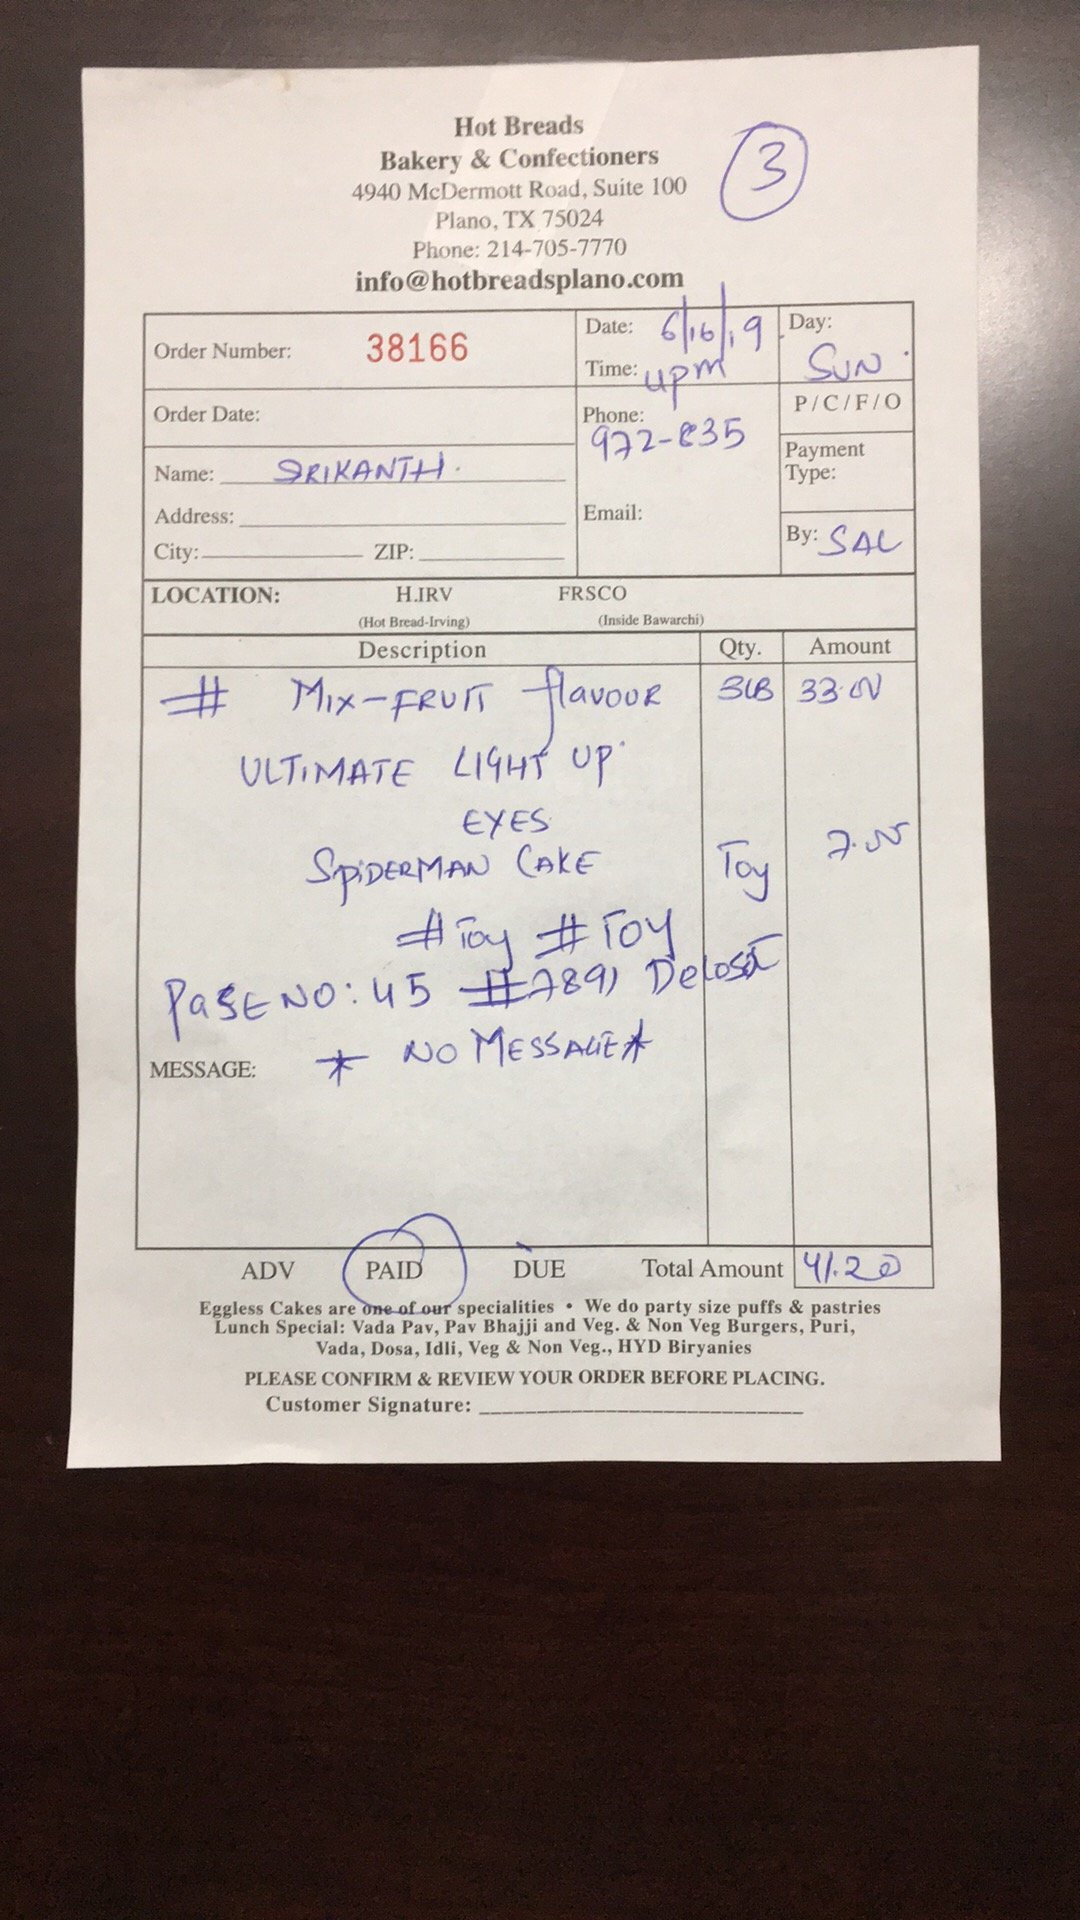 Hot Breads
Bakery & Confectioners
3
4940 McDermott Road, Suite 100
Plano, TX 75024
Phone: 214-705-7770
info@hotbreadsplano.com
Order Number: 38166
Date: 6/16/19
Day: SUN
Time: 4pm
Order Date:
Phone: 972-835
P/C/F/O
Name: SRIKANTH
Payment Type:
Address:
Email:
City: ZIP:
By: SAL
LOCATION: H.IRV FRSCO
(Hot Bread-Irving) (Inside Bawarchi)
Description Qty. Amount
# MIX-FRUIT flavour 3LB 33.00
ULTIMATE LIGHT UP
EYES
SPIDERMAN CAKE Toy 7.00
#Toy #TOY
PAGE NO: 45 #7891
MESSAGE: * NO MESSAGE*
ADV PAID DUE Total Amount 41.20
Eggless Cakes are one of our specialities • We do party size puffs & pastries
Lunch Special: Vada Pav, Pav Bhajji and Veg. & Non Veg Burgers, Puri,
Vada, Dosa, Idli, Veg & Non Veg., HYD Biryanies
PLEASE CONFIRM & REVIEW YOUR ORDER BEFORE PLACING.
Customer Signature: